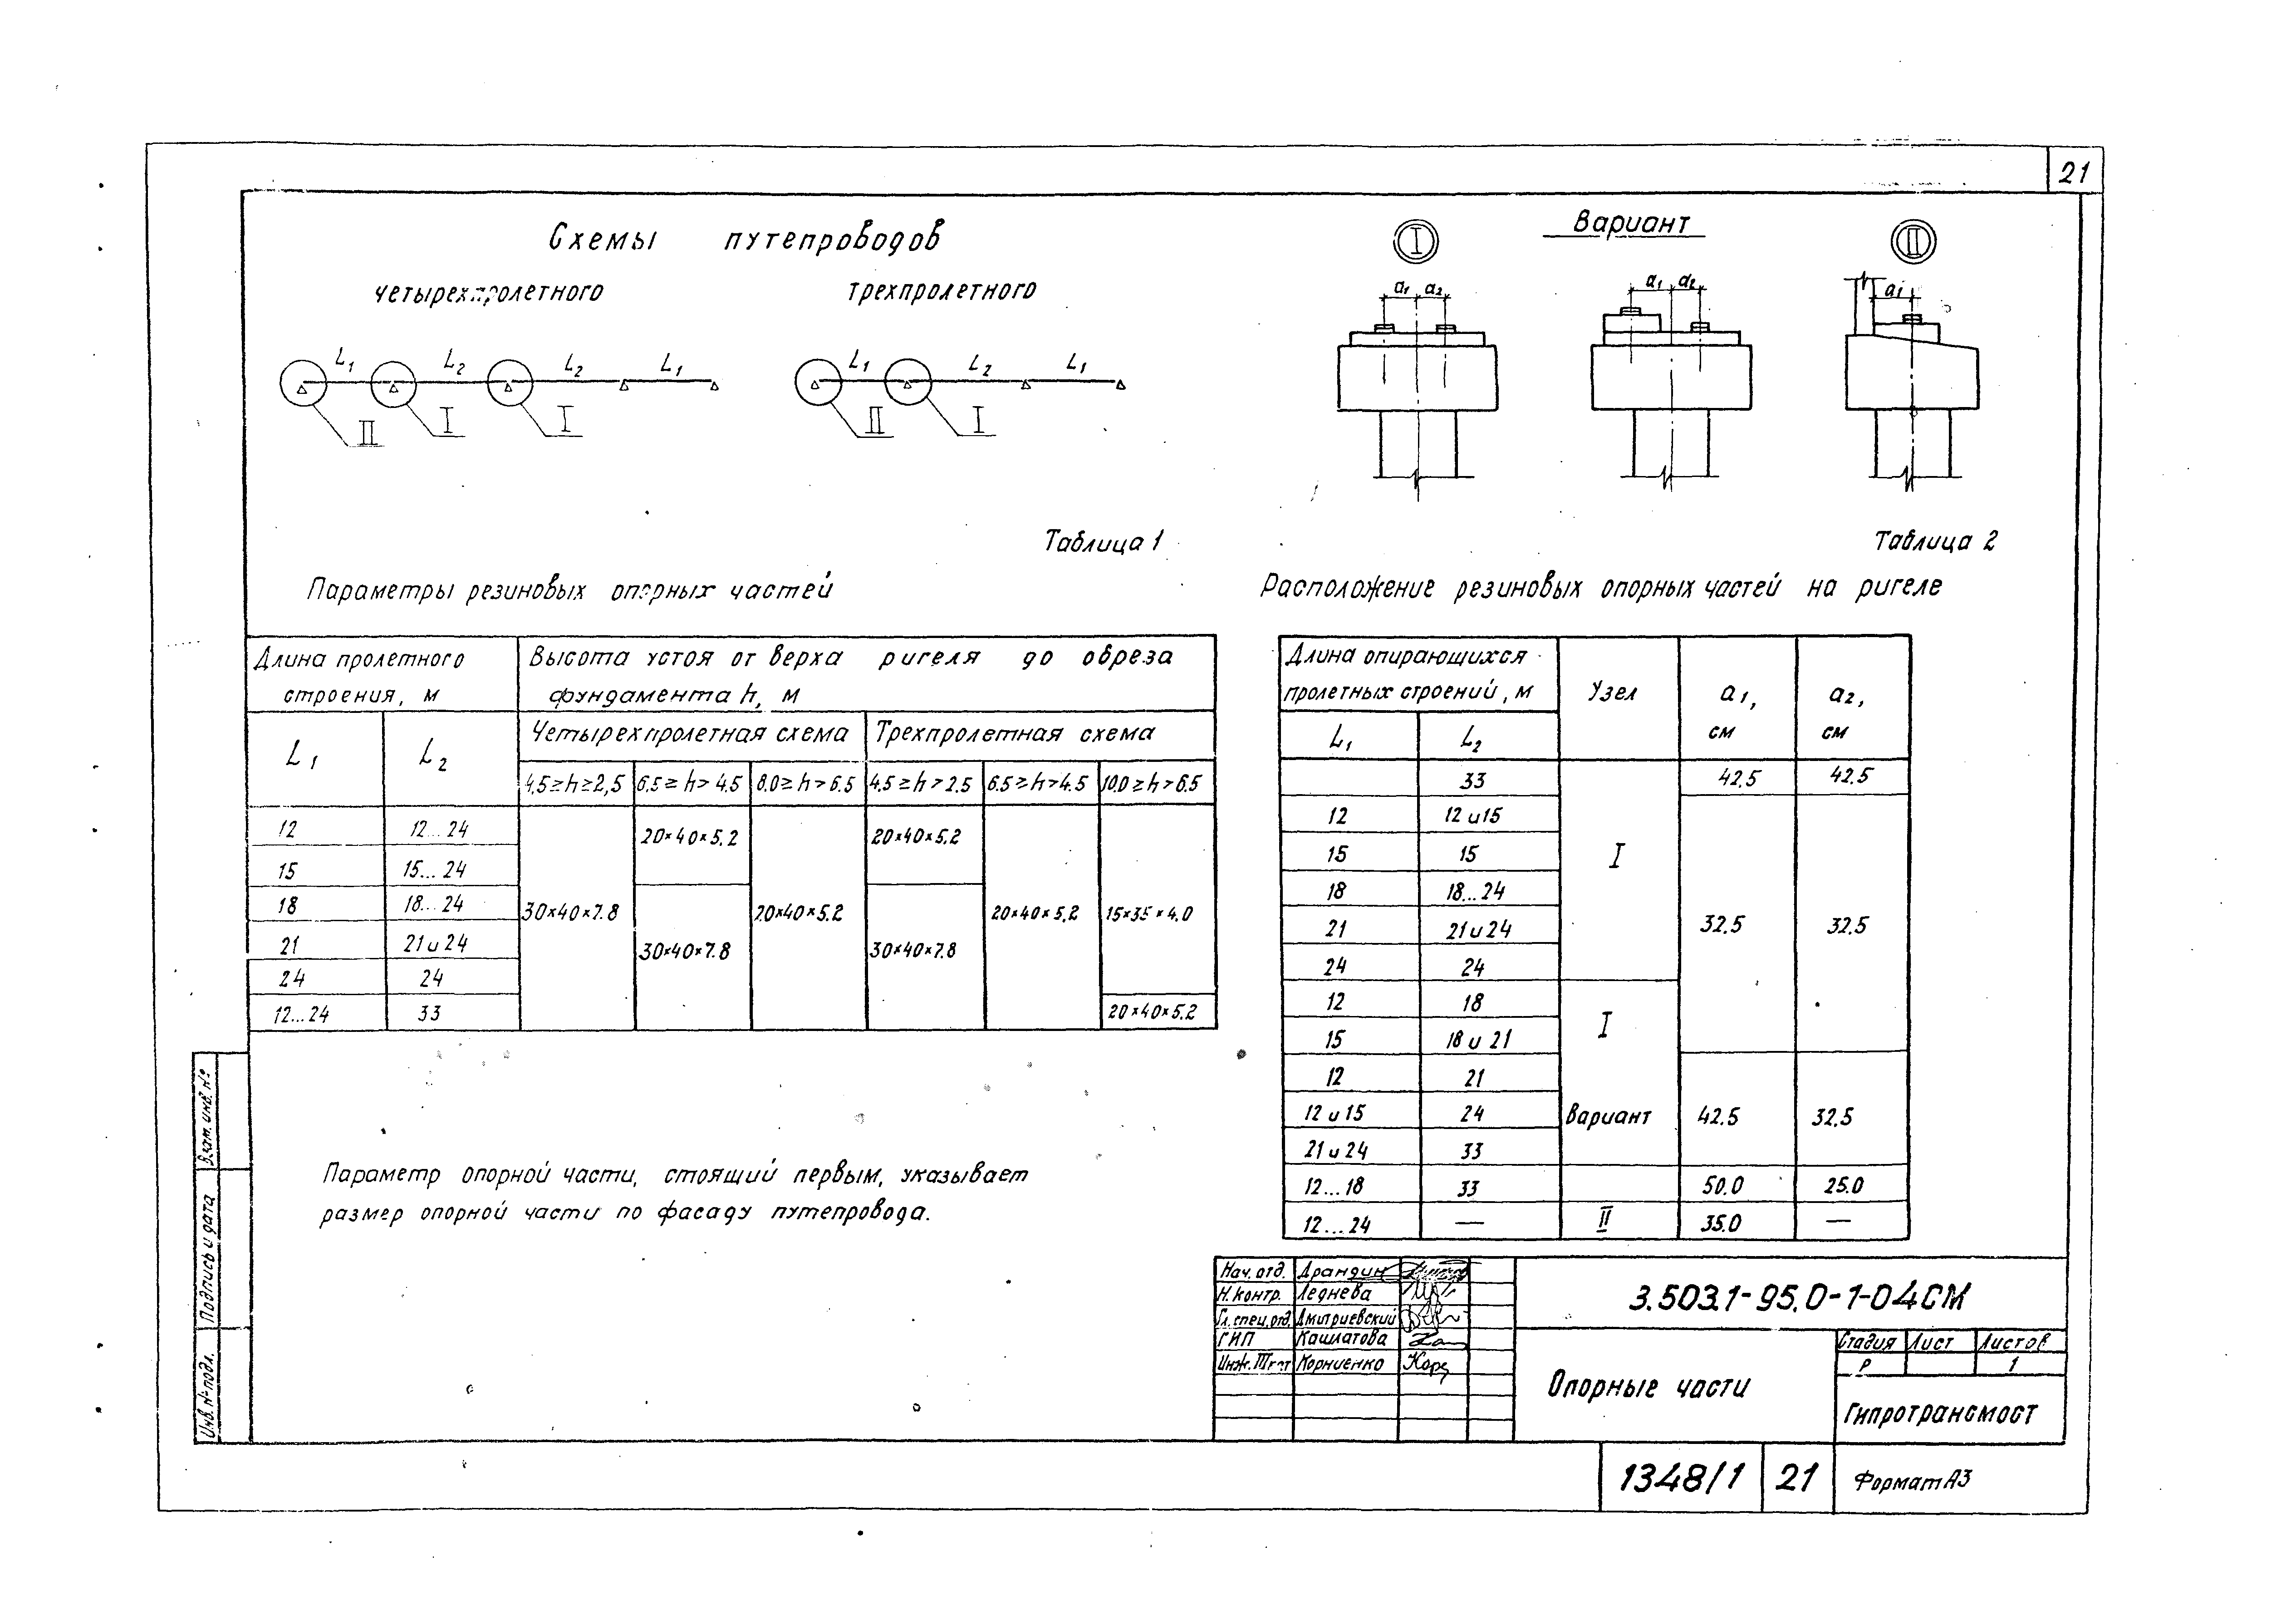 21
Схемы путепроводов
четырехпролетного
трехпролетного
L1 L2 L2 L1
II I I
L1 L2 L1
II I
I
Вариант
II
a1 a2
a1 a2
a1
Таблица 1
Параметры резиновых опорных частей
Длина пролетного строения, м
Высота устоя от верха ригеля до обреза
фундамента h, м
L1
L2
Четырехпролетная схема
Трехпролетная схема
4,5≥h≥2,5
6.5≥h>4.5
8.0≥h>6.5
4.5≥h>2.5
6.5≥h>4.5
10.0≥h>6.5
12 12...24
20×40×5.2
20×40×5.2
15 15...24
18 18...24
30×40×7.8
20×40×5.2
20×40×5.2
15×35×4.0
21 21и24
30×40×7.8
30×40×7.8
24 24
12...24 33
20×40×5.2
Параметр опорной части, стоящий первым, указывает
размер опорной части по фасаду путепровода.
Таблица 2
Расположение резиновых опорных частей на ригеле
Длина опирающихся
пролетных строений, м
Узел
a1, см
a2, см
L1
L2
33 42.5 42.5
12 12 и15
15 15
I
18 18...24
21 21и24
32.5 32.5
24 24
12 18
I
15 18 и 21
12 21
12 и 15 24
Вариант
42.5 32.5
21 и 24 33
12...18 33 50.0 25.0
12...24 — II 35.0 —
Взам. инв. №
Подпись и дата
Инв. № подл.
Нач. отд. Драндин
Н. контр. Леднева
Гл. спец. отд. Дмитриевский
ГИП Кашлатова
Корниенко
3.503.1-95.0-1-04СМ
Опорные части
Стадия Лист Листов
Р 1
Гипротрансмост
1348/1 21
Формат А3